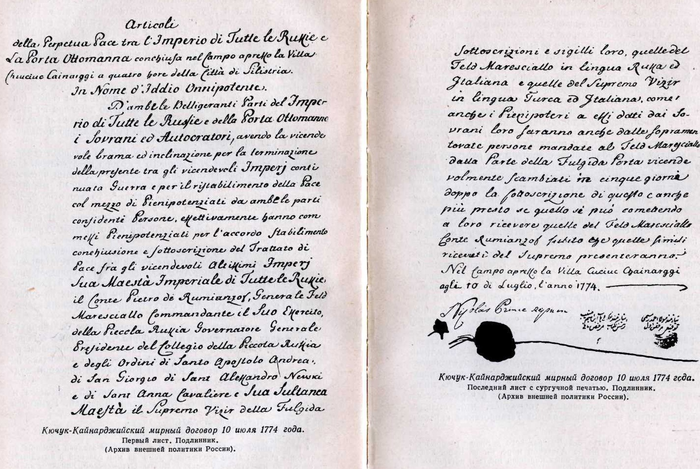 Articoli
della Perpetua Pace tra l'Imperio di Tutte le Russie e
La Porta Ottomanna conchiusa nel Campo apresso la Villa
Chiuciuc Cainarggi a quatro hore della Città di Silistria.
In Nome d'Iddio Onnipotente.
D'ambe le Belligeranti Parti del Impe-
rio di Tutte le Russie e della Porta Ottomanno
i Sovrani ed Autocratori, avendo la vicende
vole brama ed inclinazione per la terminazione
della presente tra gli vicendevoli Imperj conti
nuata Guerra e per il ristabilimento della Pace
col mezzo di Plenipotenziati da ambe le parti
confidenti Persone, effettivamente hanno com
messi Plenipotenziati per l'accordo stabilimento
conchiusione e sottoscrizione del Trattato di
Pace frà gli vicendevoli Altissimi Imperj
Sua Maestà Imperiale di Tutte le Russie,
il Conte Pietro de Rumianzof, Generale Feld
Maresciallo Commandante il Suo Esercito,
della Piccola Russia Governatore Generale
Presidente del Collegio della Piccola Russia
e degli Ordini di Santo Apostolo Andrea,
di San Giorgio di Sant Alessandro Newski
e di Sant Anna Cavaliere e Sua Sultanea
Maestà il Supremo Vizir della Fulgida
Кючук-Кайнарджийский мирный договор 10 июля 1774 года.
Первый лист. Подлинник.
(Архив внешней политики России).
Sottoscrizioni e sigilli loro, quelle del
Feld Maresciallo in lingua Russa ed
Italiana e quelle del Supremo Vizir
in lingua Turca ed Italiana, come
anche i Plenipoteri a essi dati dai So-
vrani loro saranno anche dalle sopramen
tovate persone mandate al Feld Maresciallo
dalla Parte della Fulgida Porta vicende
volmente scambiati in cinque giorni
doppo la sottoscrizione di questo e anche
più presto se quello si può comettendo
a loro ricevere quelle del Feld Maresciallo
Conte Rumianzof subito che quelle simili
ricevuti del Supremo presenteranno.
Nel Campo apresso la Villa Cuciuc Chainarggi
agli 10 di Luglio, l'anno 1774.
Кючук-Кайнарджийский мирный договор 10 июля 1774 года
Последний лист с сургучной печатью. Подлинник.
(Архив внешней политики России).